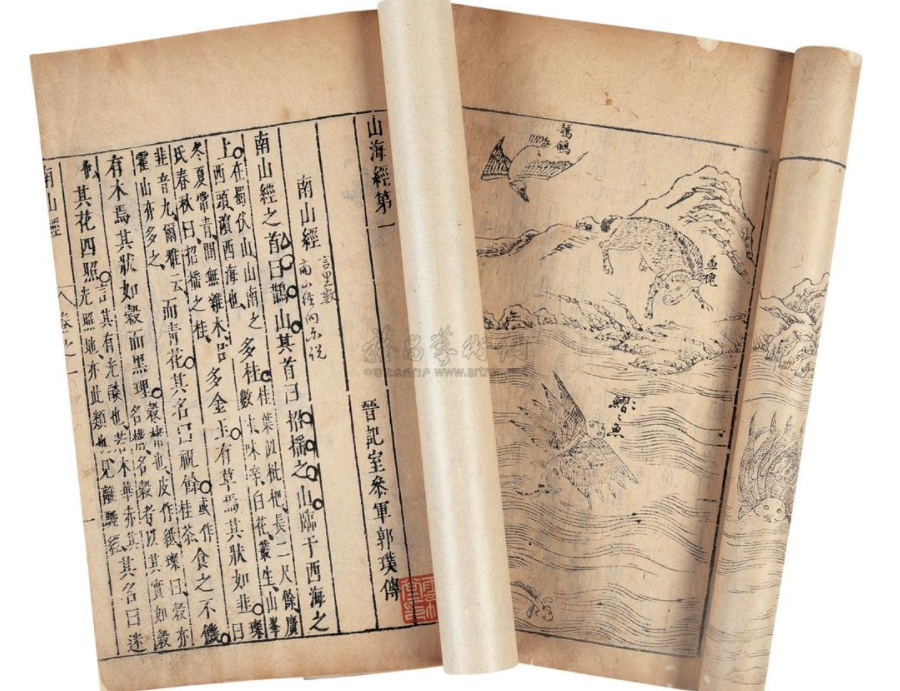 山海經第一
晉記室參軍郭璞傳
南山經
南山經之首曰䧿山其首曰招搖之山臨于西海之
上在蜀伏山山南之西頭濱西海也多桂桂葉似枇杷長二尺餘廣數寸味辛白花叢生山峯冬夏常青間無雜木呂氏春秋曰招搖之桂多金玉有草焉其狀如韭璨曰韭音九爾雅云而青花其名曰祝餘或作桂茶食之不饑
有木焉其狀如穀而黑理穀楮也皮作紙璨曰穀亦名構名穀者以其實如穀也其花四照言其有光燄也若木華赤其光照地亦此類也見離騷經其名曰迷
南山經
卷之一
一
鸓鶹
鰼鰼魚
www.artron.net